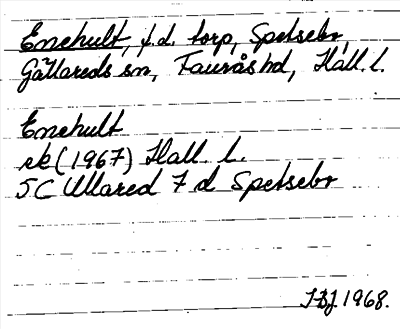 Enehult, f.d. torp, Spetsebr,
Gällareds sn, Faurås hd, Hall. l.
Enehult
ek (1967) Hall. l.
5C Ullared 7 d Spetsebr
1968.